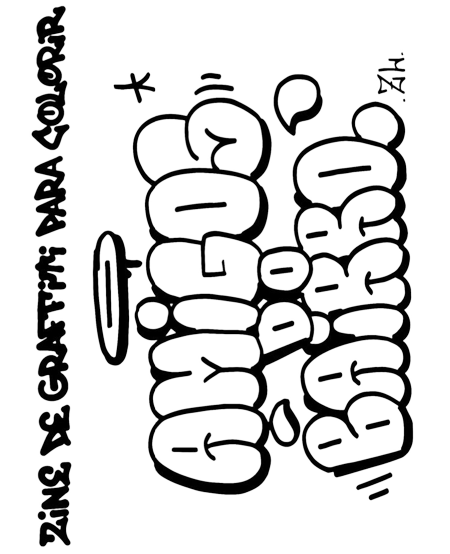 ZiNE DE GRAFFiTi PARA COLORiR
AMiGOS
DO
BAiRRO